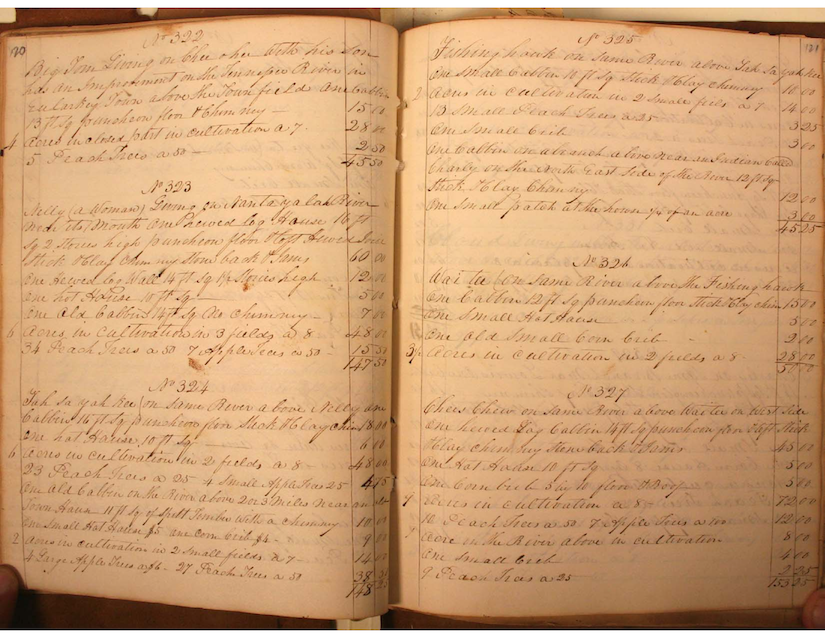 120
No 322
Big Tom Living on Chee o hee with his Son
has an Improvement on the Tennessee River in
Town above the Town field One Cabbin
13 ft Sq puncheon floor & Chimney — 15 00
4 Acres inclosed part in cultivation a 7 - 28 00
5 Peach Trees a 50 — 2 50
45 50
No 323
Nelly (a Woman) Living on Nanta ya lah River
near its Mouth One Hewed Log House 16 ft
Sq 2 Stories high puncheon floor & loft Hewed
Stick & Clay Chimney Stone back & Jams 60 00
One Hewed Log Wall 14 ft Sq 1½ Stories high 12 00
One Hot House 10 ft Sq — 5 00
One Old Cabbin 14 ft Sq No Chimney — 7 00
6 Acres in Cultivation in 3 fields a 8 - 48 00
34 Peach Trees a 50 7 Apple Trees a 50 - 15 50
147 50
No 324
Tah sa yah kee on Same River above Nelly one
Cabbin 16 ft Sq puncheon floor Stick & Clay Chim 18 00
One hot House 10 ft Sq — 6 00
6 Acres in cultivation in 2 fields a 8 48 00
23 Peach Trees a 25 4 Small Apple Trees 25
One Old Cabbin on the River above 2 or 3 Miles Near an old
Town House 11 ft Sq of Split Timber With a Chimney 10 00
One Small Hot House $5 one Corn Crib $4 - 9 00
2 Acres in cultivation in 2 Small fields a 7 - 14 00
4 Large Apple Trees a $6 - 27 Peach Trees a 50
148
121
No 325
Fishing hawk on Same River above Tah sa yah kee
One Small Cabbin 10 ft Sq Stick & Clay Chimney 10 00
2 Acres in Cultivation in 2 Small fields a 7 14 00
13 Small Peach Trees a 25 3 25
One Small Crib 3 00
One Cabbin on a branch above Near an Indian Called
Charly on the North East Side of the River 12 ft Sq
Stick & Clay Chimny 12 00
One Small patch at the house ¼ of an acre 3 00
45 25
No 326
Wai te on Same River above the Fishing hawk
One Cabbin 12 ft Sq puncheon floor Stick & Clay Chim 15 00
One Small Hot House 5 00
One Old Small Corn Crib - 2 00
3½ Acres in Cultivation in 2 fields a 8 28 00
No 327
Chees Chew on Same River above Wai te on West Side
One hewed Log Cabbin 14 ft Sq puncheon floor & loft Stick
& Clay Chimney Stone back & Jams 45 00
One Hot House 10 ft Sq 5 00
One Corn Crib 5 by 10 floor & Roof 5 00
9 Acres in Cultivation a 8 72 00
12 Peach Trees a 50 7 Apple Trees a 100 12 00
Acre on the River above in cultivation 8 00
One Small Crib 4 00
9 Peach Trees a 25 2 25
153 25